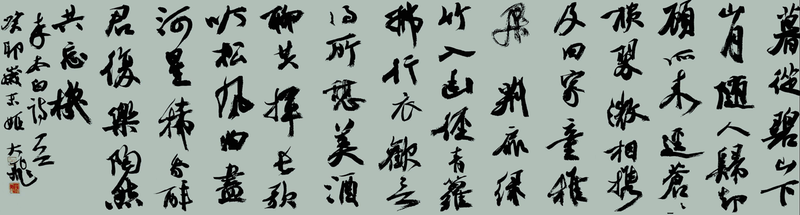 暮從碧山下
山月隨人歸却
顧所来迳蒼〻
横翠微相携
及田家童稚
開荆扉緑
竹入幽徑青蘿
拂行衣歡言
得所憩美酒
聊共揮長歌
吟松風曲盡
河星稀我醉
君復樂陶然
共忘機
李太白詩
癸卯歲末姬大飛